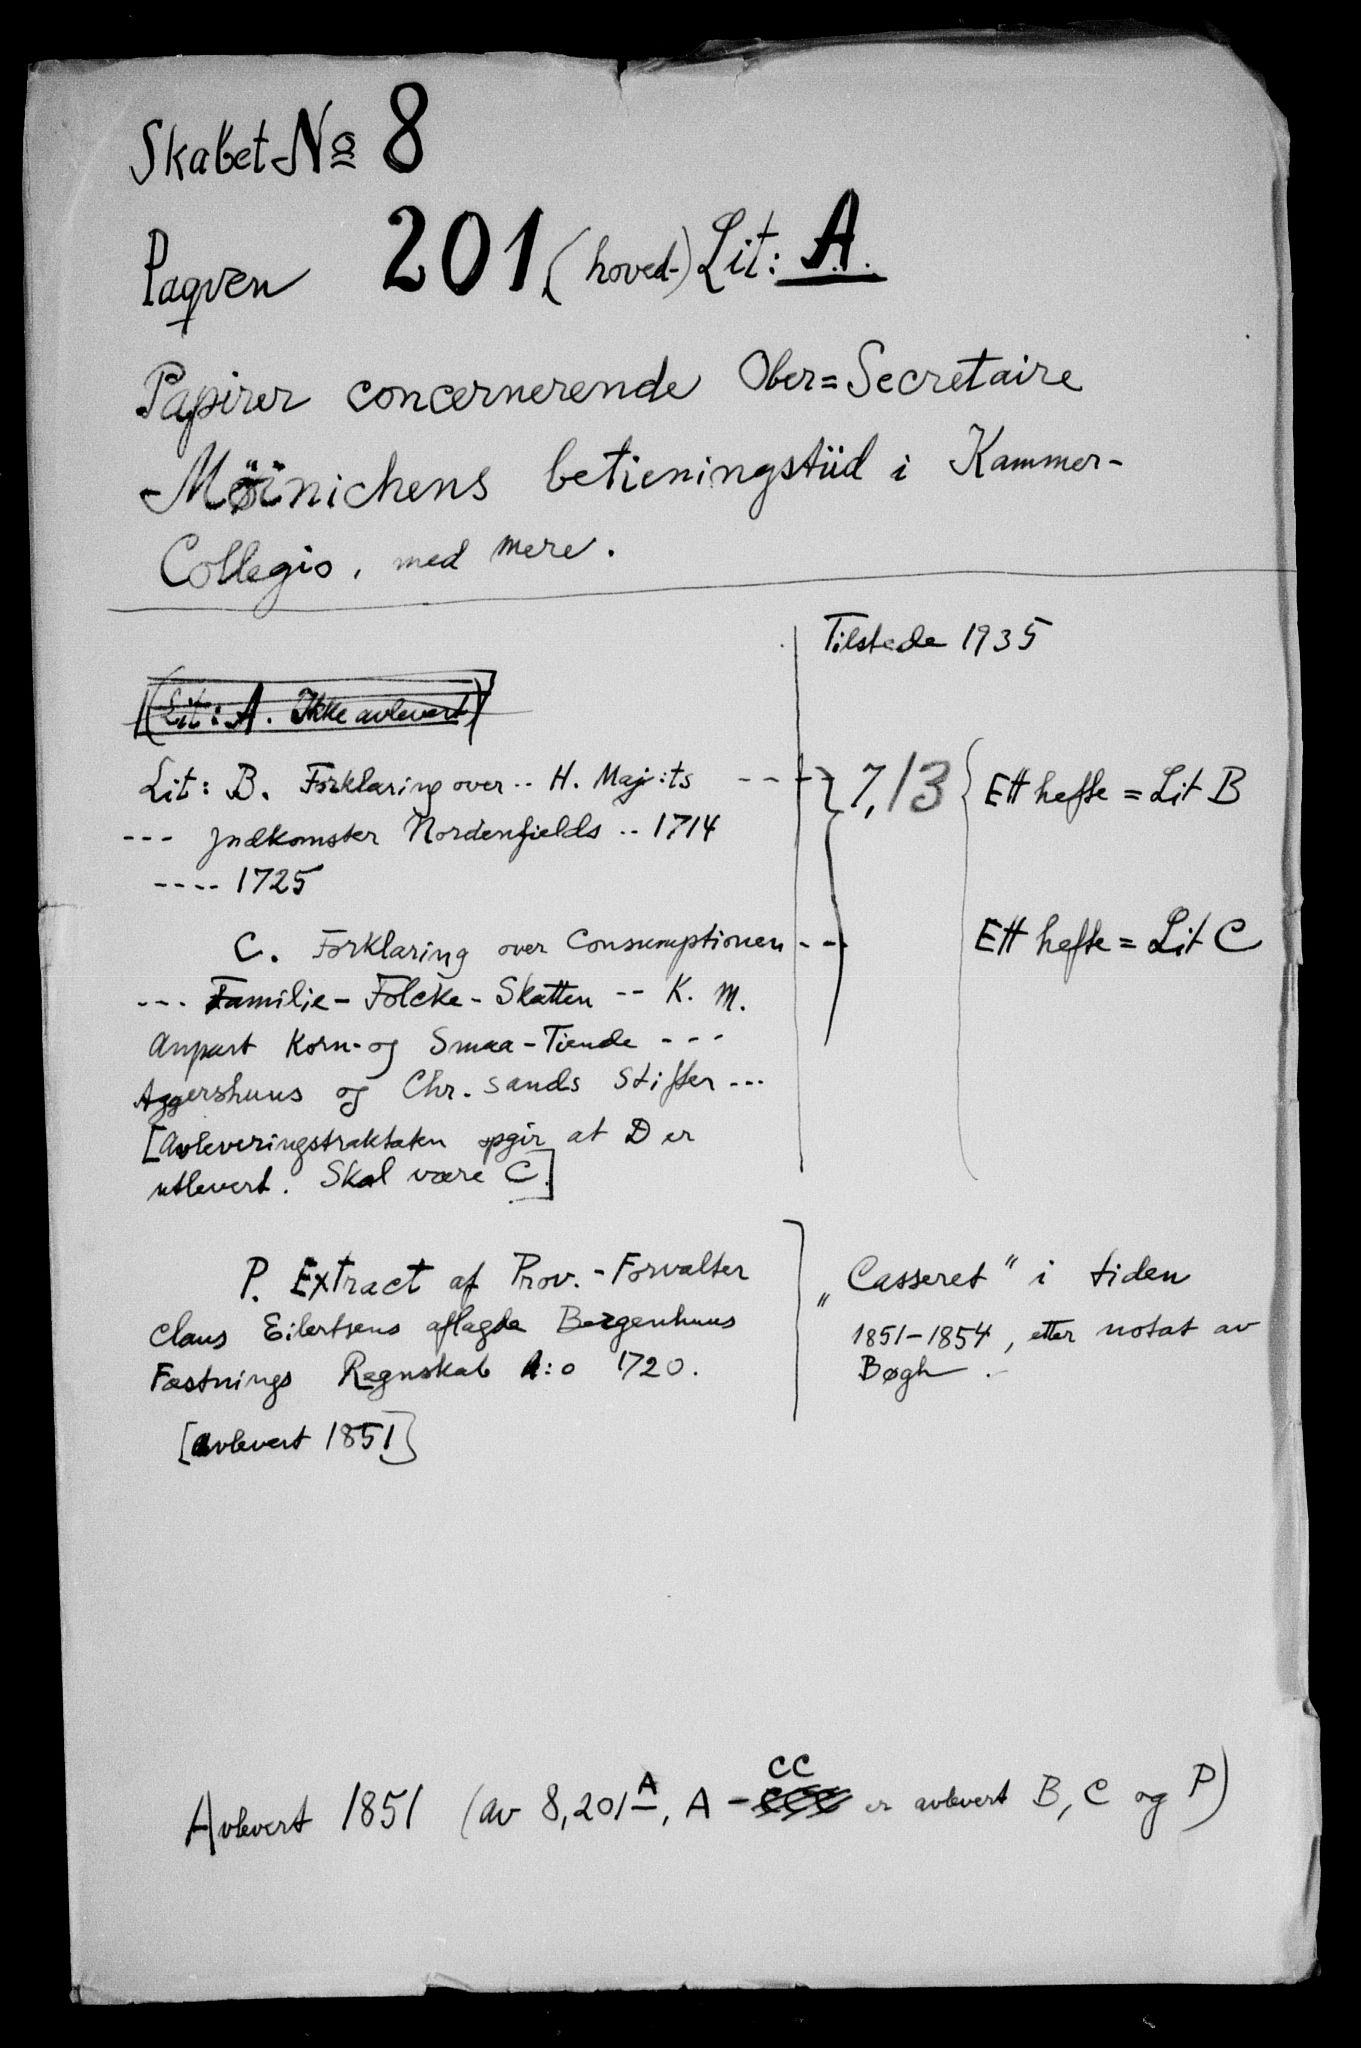 Skabet No 8
Paqven 201 (hoved-) Lit: A.
Papirer concernerende Ober=Secretaire
Møinichens betieningstiid i Kammer-
Collegio, med mere.
Tilstede 1935
(Lit: A. Ikke avlevert)
Lit: B. Forklaring over -- H. Maj:ts ---- 7,13 Ett hefte = Lit B
--- Indkomster Nordenfields -- 1714
---- 1725
C. Forklaring over Consumptionen --- Ett hefte = Lit C
--- Familie-Folcke-Skatten -- K. M.
Anpart Korn- og Smaa-Tiende ---
Aggershuus og Chr.sands Stifter ---
[Avleveringstraktaten opgir at D er
utlevert. Skal være C.]
P. Extract af Prov.-Forvalter
Claus Eilertsens aflagde Bergenhuus
Fæstnings Regnskab A:o 1720.
[avlevert 1851]
„Casseret" i tiden
1851-1854, etter notat av
Bøgh.
Avlevert 1851 (av 8,201 A, A - CC er avlevert B, C og P)